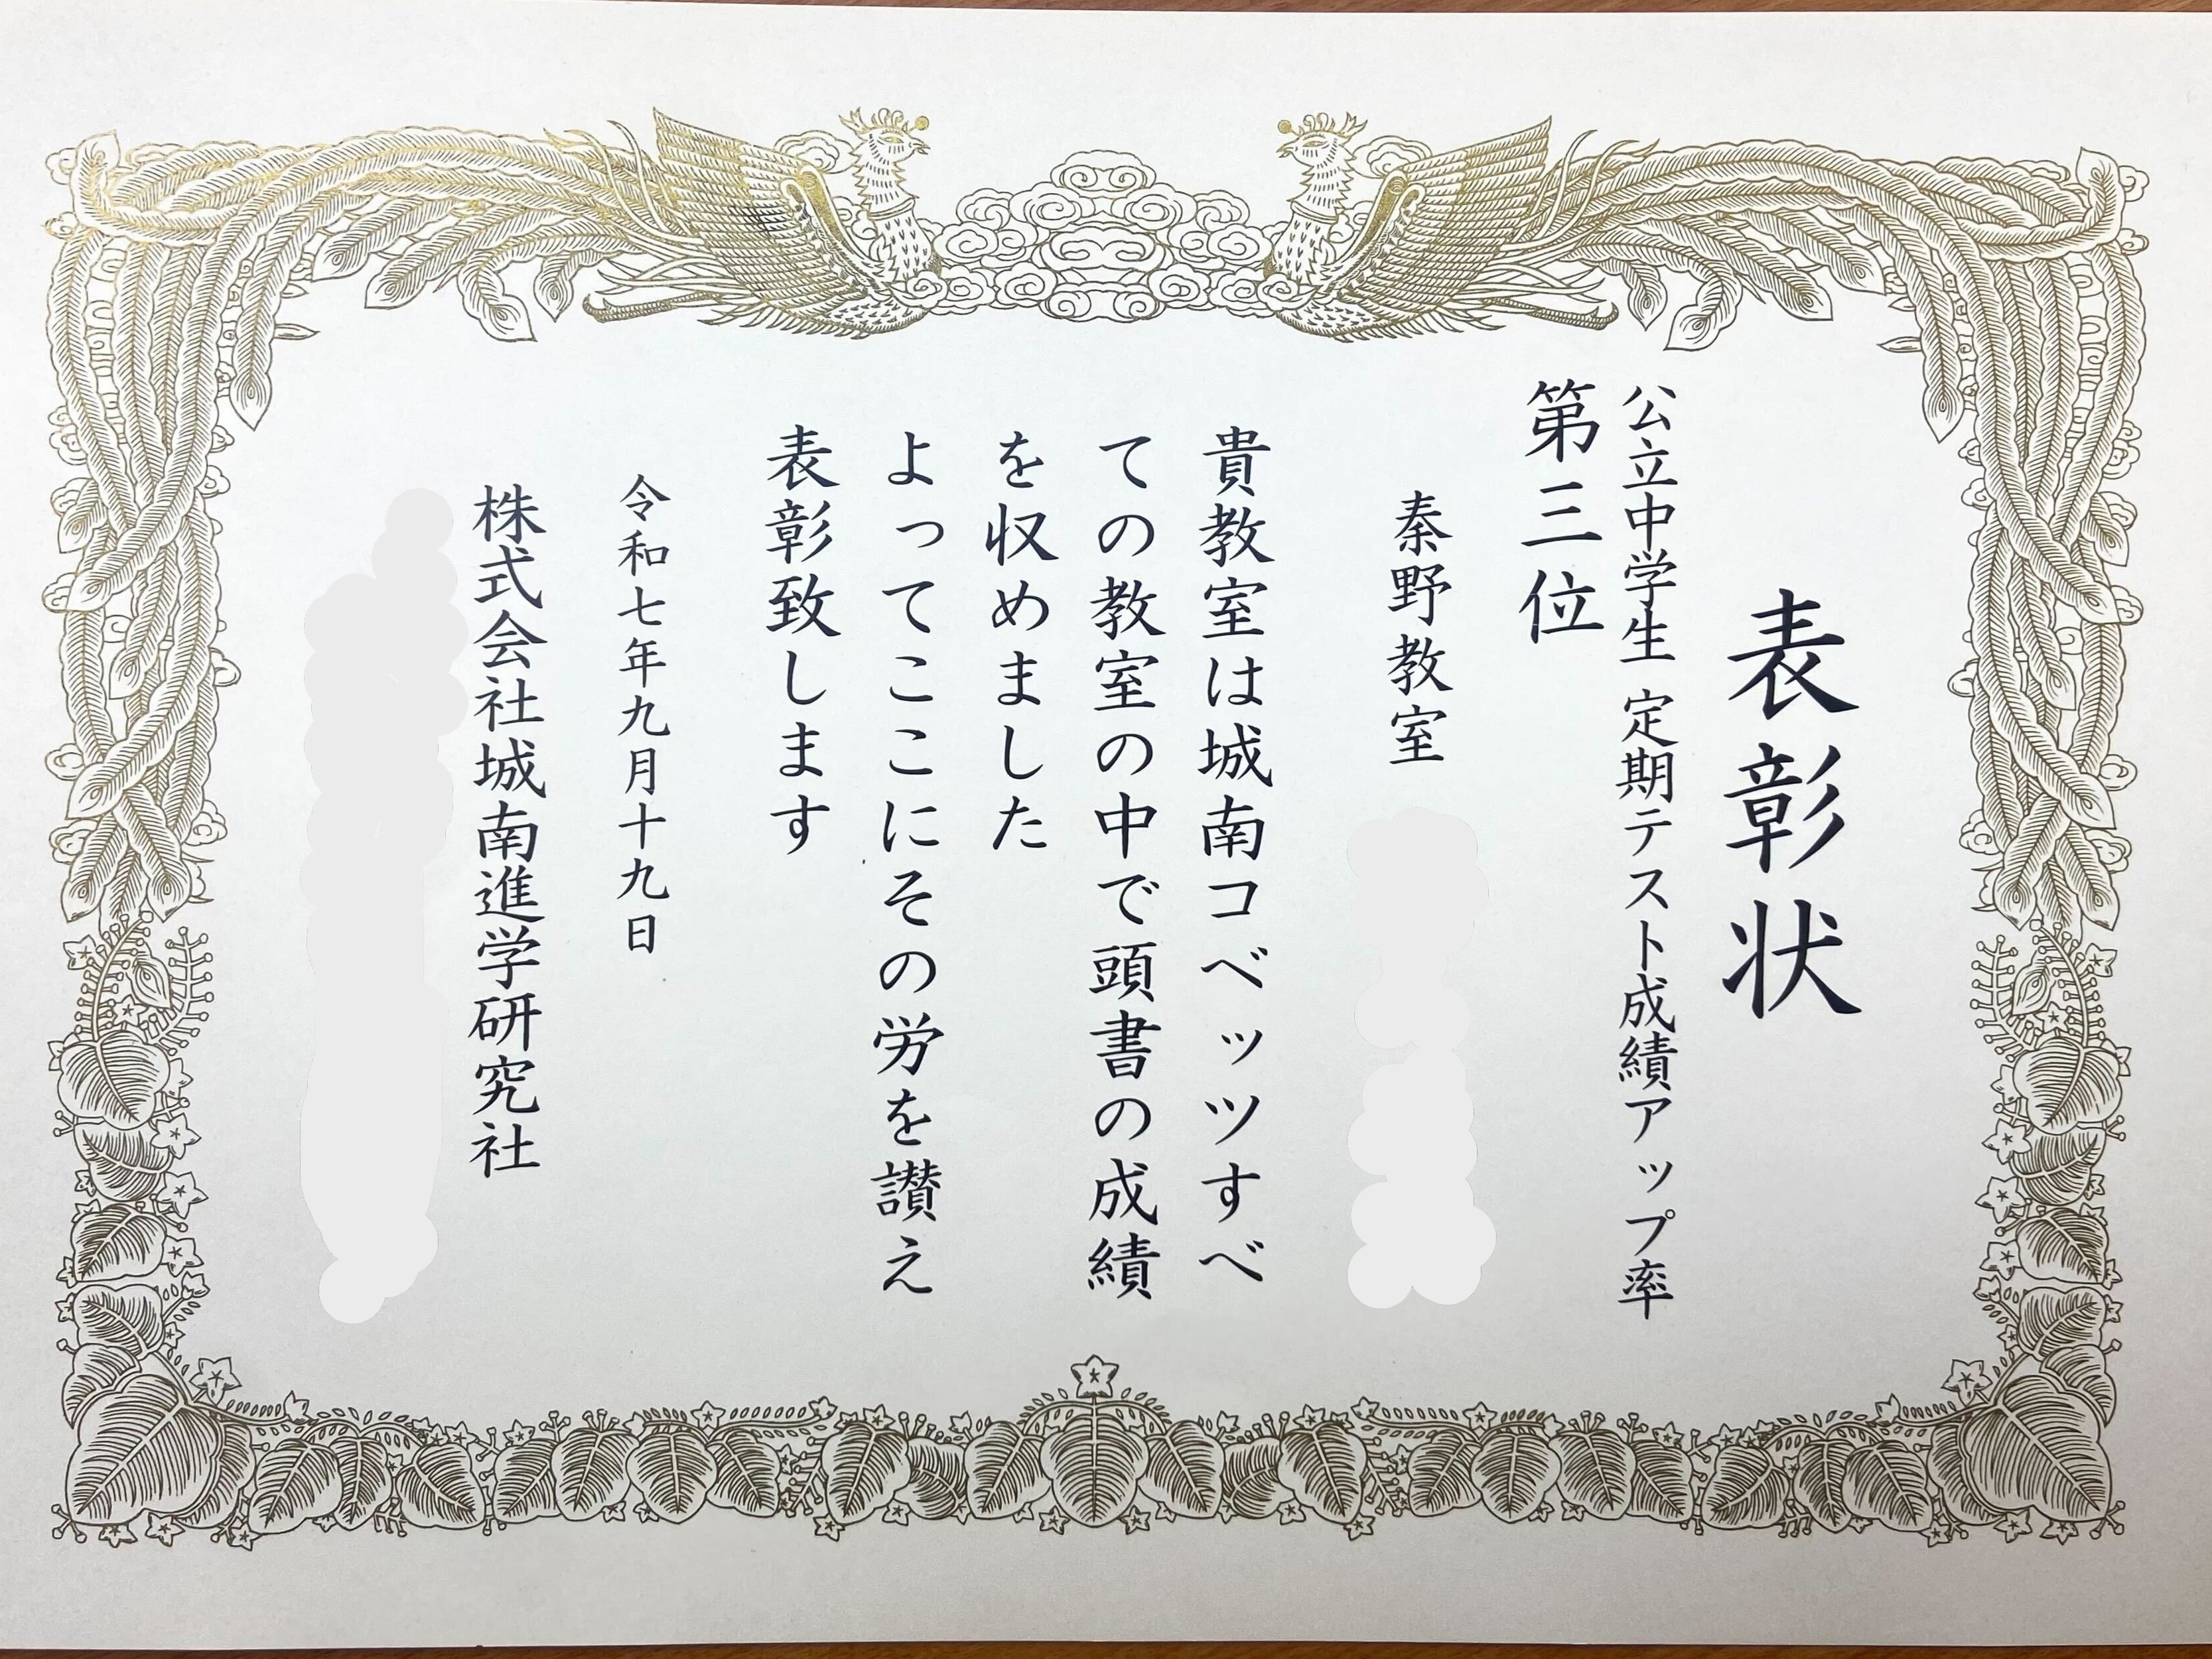 表彰状
公立中学生 定期テスト成績アップ率
第三位
秦野教室
貴教室は城南コベッツすべ
ての教室の中で頭書の成績
を収めました
よってここにその労を讃え
表彰致します
令和七年九月十九日
株式会社城南進学研究社